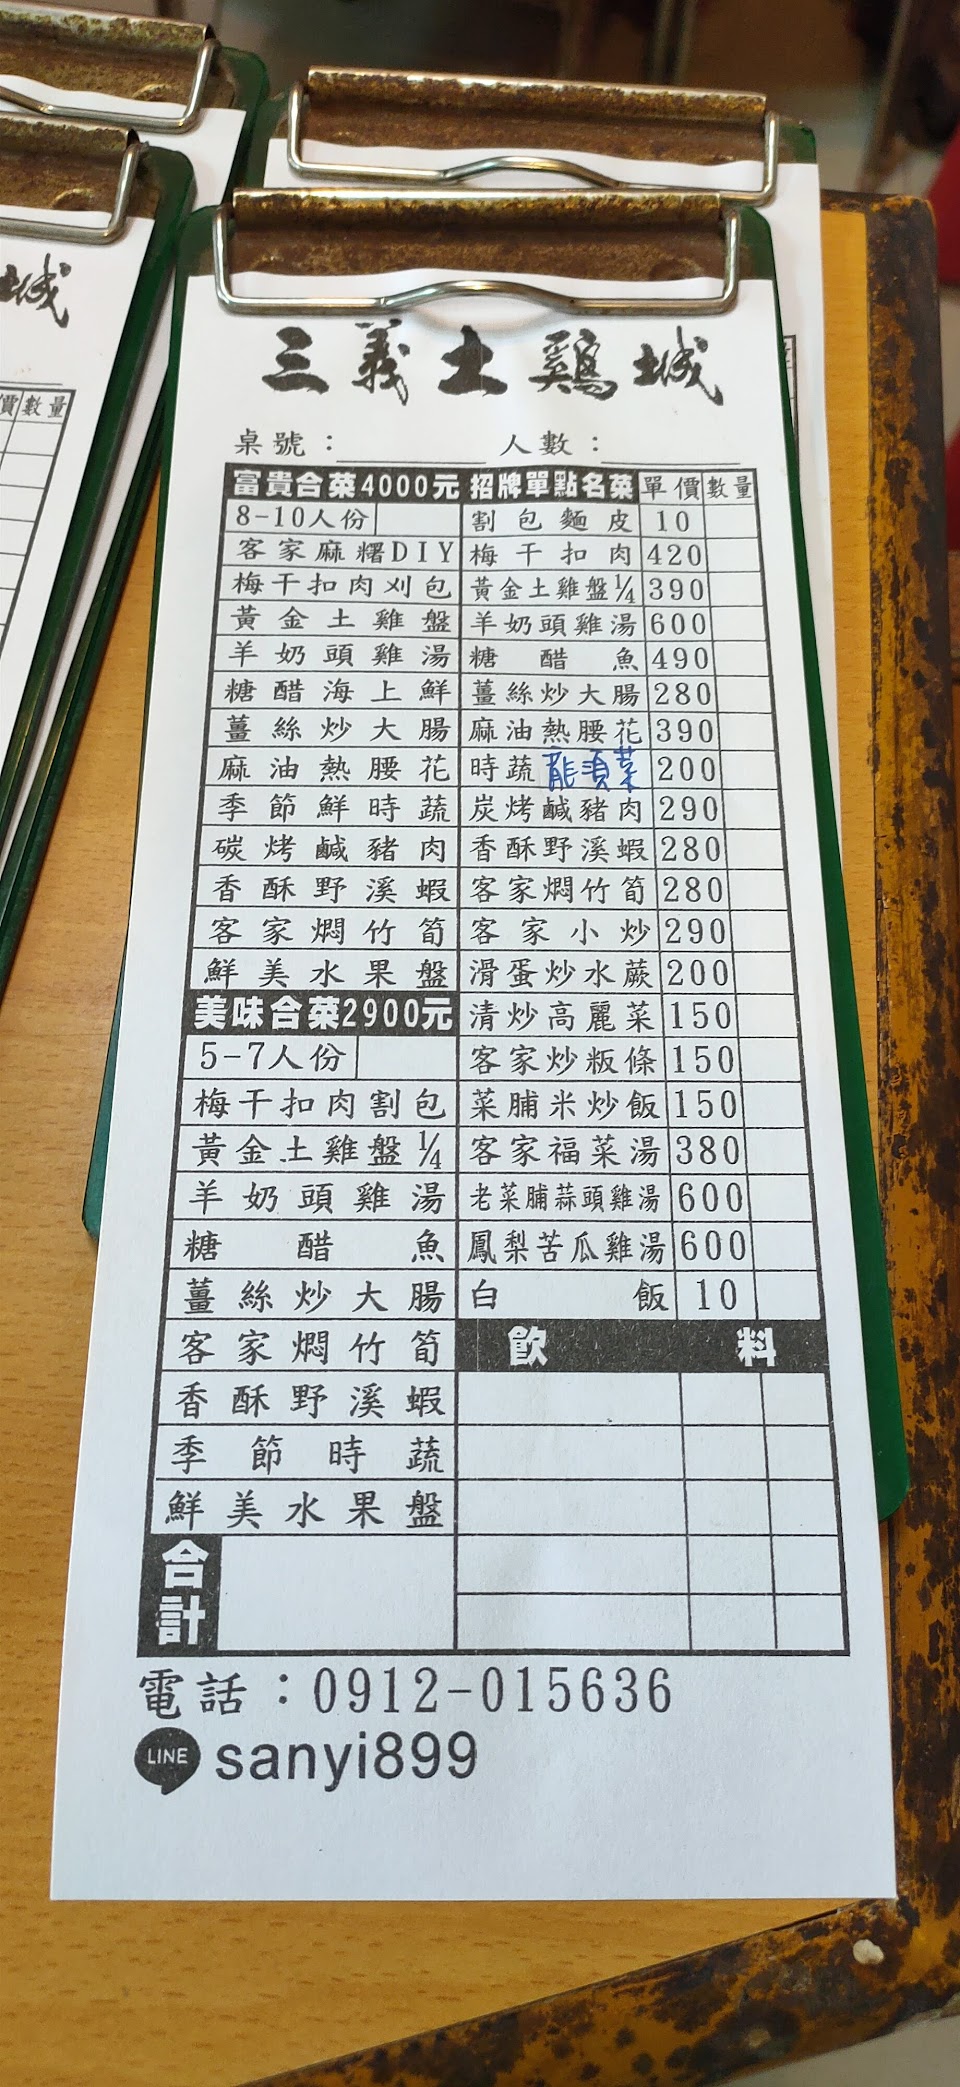 三義土鷄城
桌號：　人數：
富貴合菜4000元 招牌單點名菜 單價 數量
8-10人份 割包麵皮 10
客家麻糬DIY 梅干扣肉 420
梅干扣肉刈包 黃金土雞盤¼ 390
黃金土雞盤 羊奶頭雞湯 600
羊奶頭雞湯 糖醋魚 490
糖醋海上鮮 薑絲炒大腸 280
薑絲炒大腸 麻油熱腰花 390
麻油熱腰花 時蔬 龍須菜 200
季節鮮時蔬 炭烤鹹豬肉 290
碳烤鹹豬肉 香酥野溪蝦 280
香酥野溪蝦 客家燜竹筍 280
客家燜竹筍 客家小炒 290
鮮美水果盤 滑蛋炒水蕨 200
美味合菜2900元 清炒高麗菜 150
5-7人份 客家炒粄條 150
梅干扣肉割包 菜脯米炒飯 150
黃金土雞盤¼ 客家福菜湯 380
羊奶頭雞湯 老菜脯蒜頭雞湯 600
糖醋魚 鳳梨苦瓜雞湯 600
薑絲炒大腸 白飯 10
客家燜竹筍 飲料
香酥野溪蝦
季節時蔬
鮮美水果盤
合計
電話：0912-015636
LINE sanyi899
城
價 數量